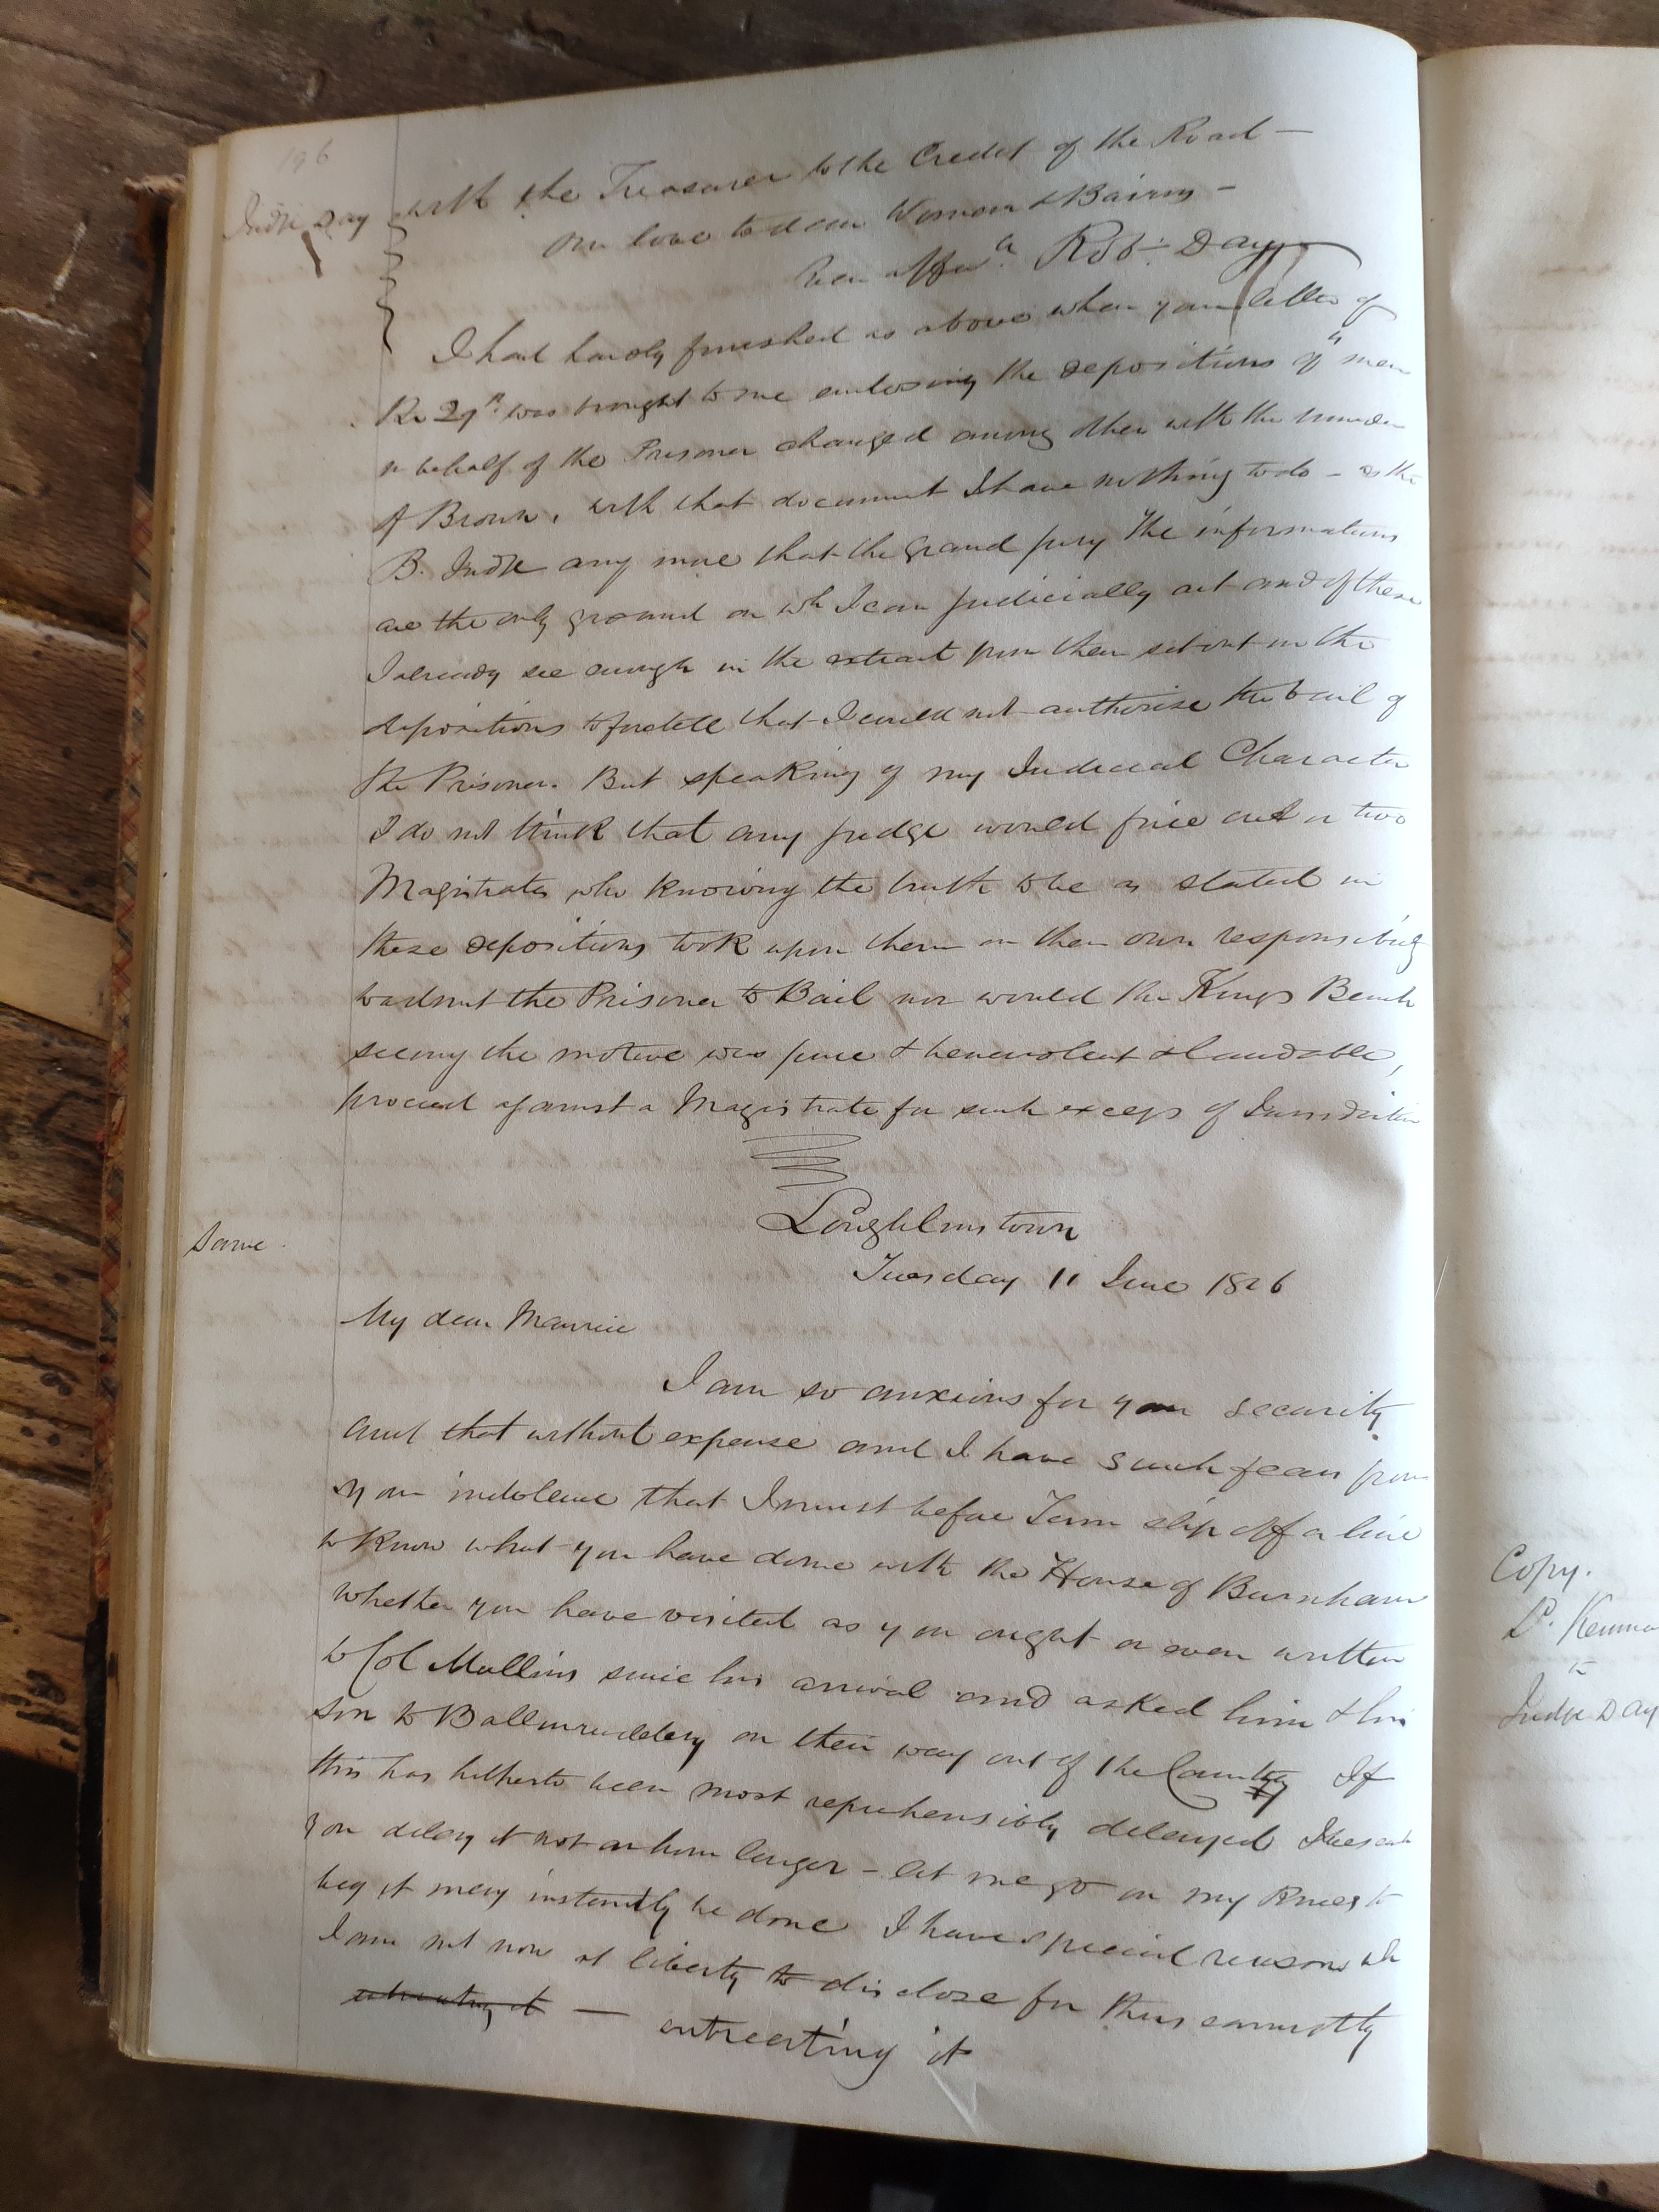 196
Judge Day
with the Treasurer to the Credit of the Road —
Our love to dear Woman & Bairns —
Ever affecte Robt: Day
I had hardly finished as above when your letter of
the 29th was brought to me enclosing the depositions of 4 men
in behalf of the Prisoner charged among other with the murder
of Brown. with that document I have nothing to do — as the
B. Judge any more that the grand jury The informations
are the only ground on wh I can judicially act and of these
I already see enough in the extract from them set out in the
depositions to foretell that I could not authorise the bail of
the Prisoner. But speaking of my Judicial Character
I do not think that any judge would fine one or two
Magistrates who knowing the truth to be as stated in
these depositions took upon them on their own responsibility
to admit the Prisoner to Bail nor would the Kings Bench
seeing the motive was pure & benevolent & laudable,
proceed against a Magistrate for such excess of Jurisdiction
Loughlinstown
Same.
Tuesday 11 June 1826
My dear Maurice
I am so anxious for your security
and that without expense and I have such fears from
your indolence that I must before Term slip off a line
to know what you have done with the House of Burnham
whether you have visited as you ought or even written
to Col Mullins since his arrival and asked him & his
son to Ballinruddery on their way out of the Country If
this has hitherto been most reprehensibly delayed I beseech
you delay it not an hour longer — let me go on my knees to
beg it may instantly be done I have special reasons wh
I am not now at liberty to disclose for thus earnestly
entreating it — entreating it
Copy.
Judge Day